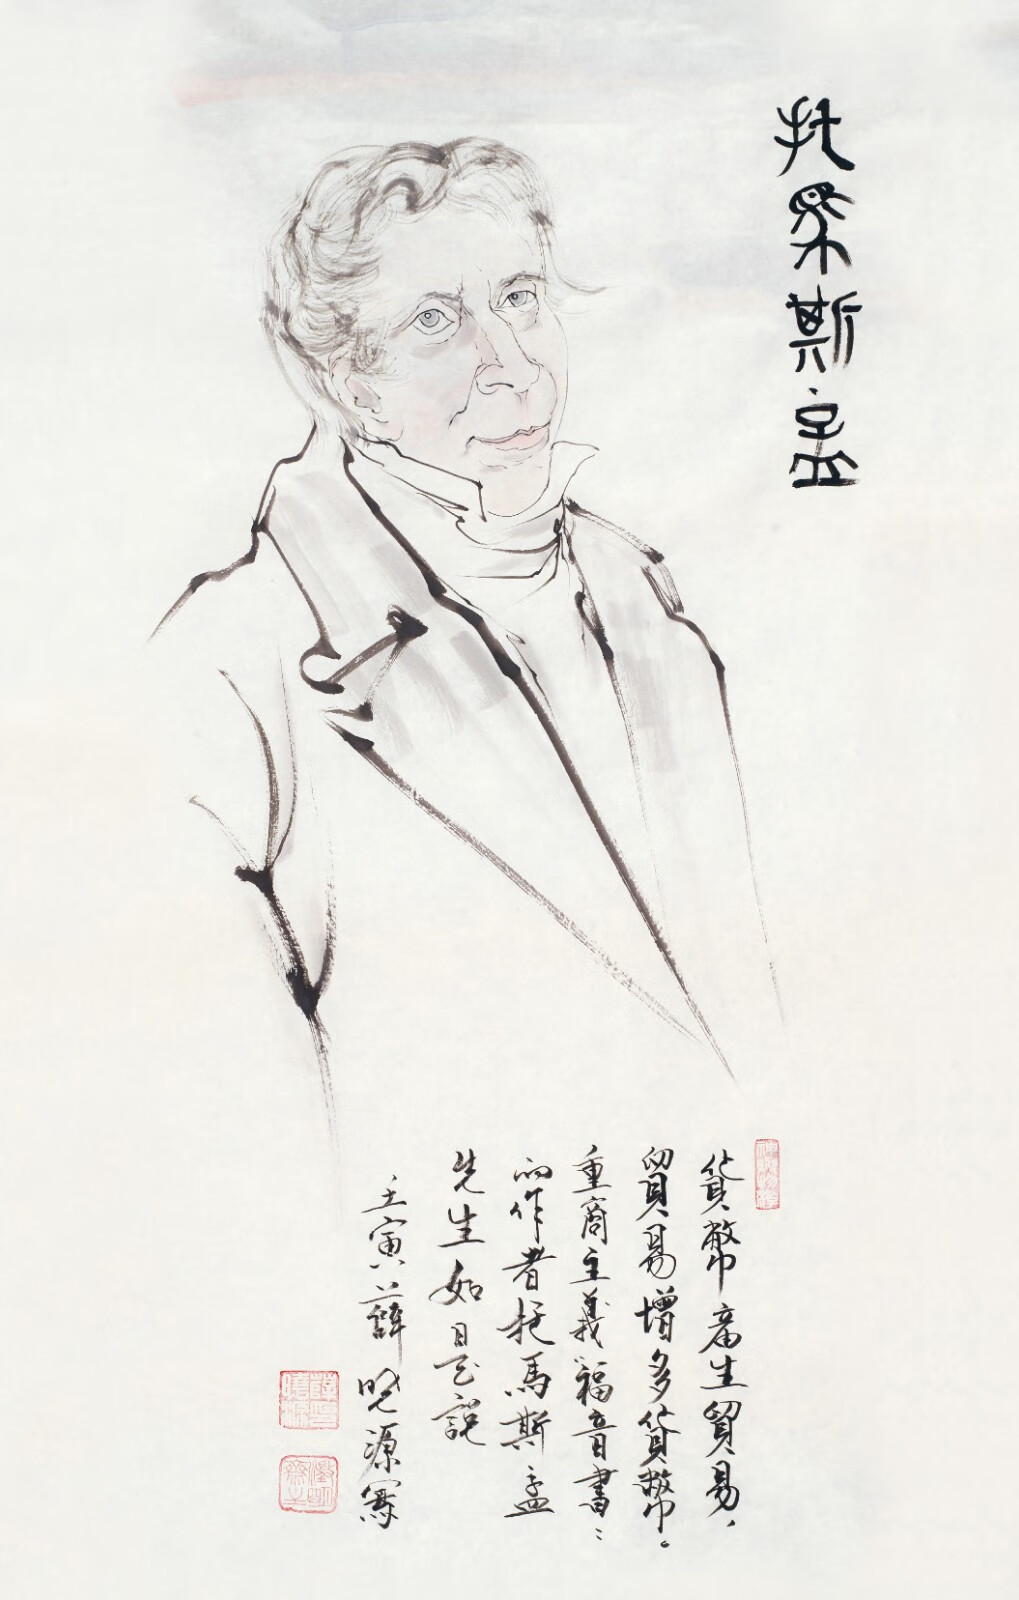 托馬斯孟
貨幣產生貿易，
貿易增多貨幣。
重商主義福音書：
的作者托馬斯孟
先生如是說
壬寅薛曉源寫